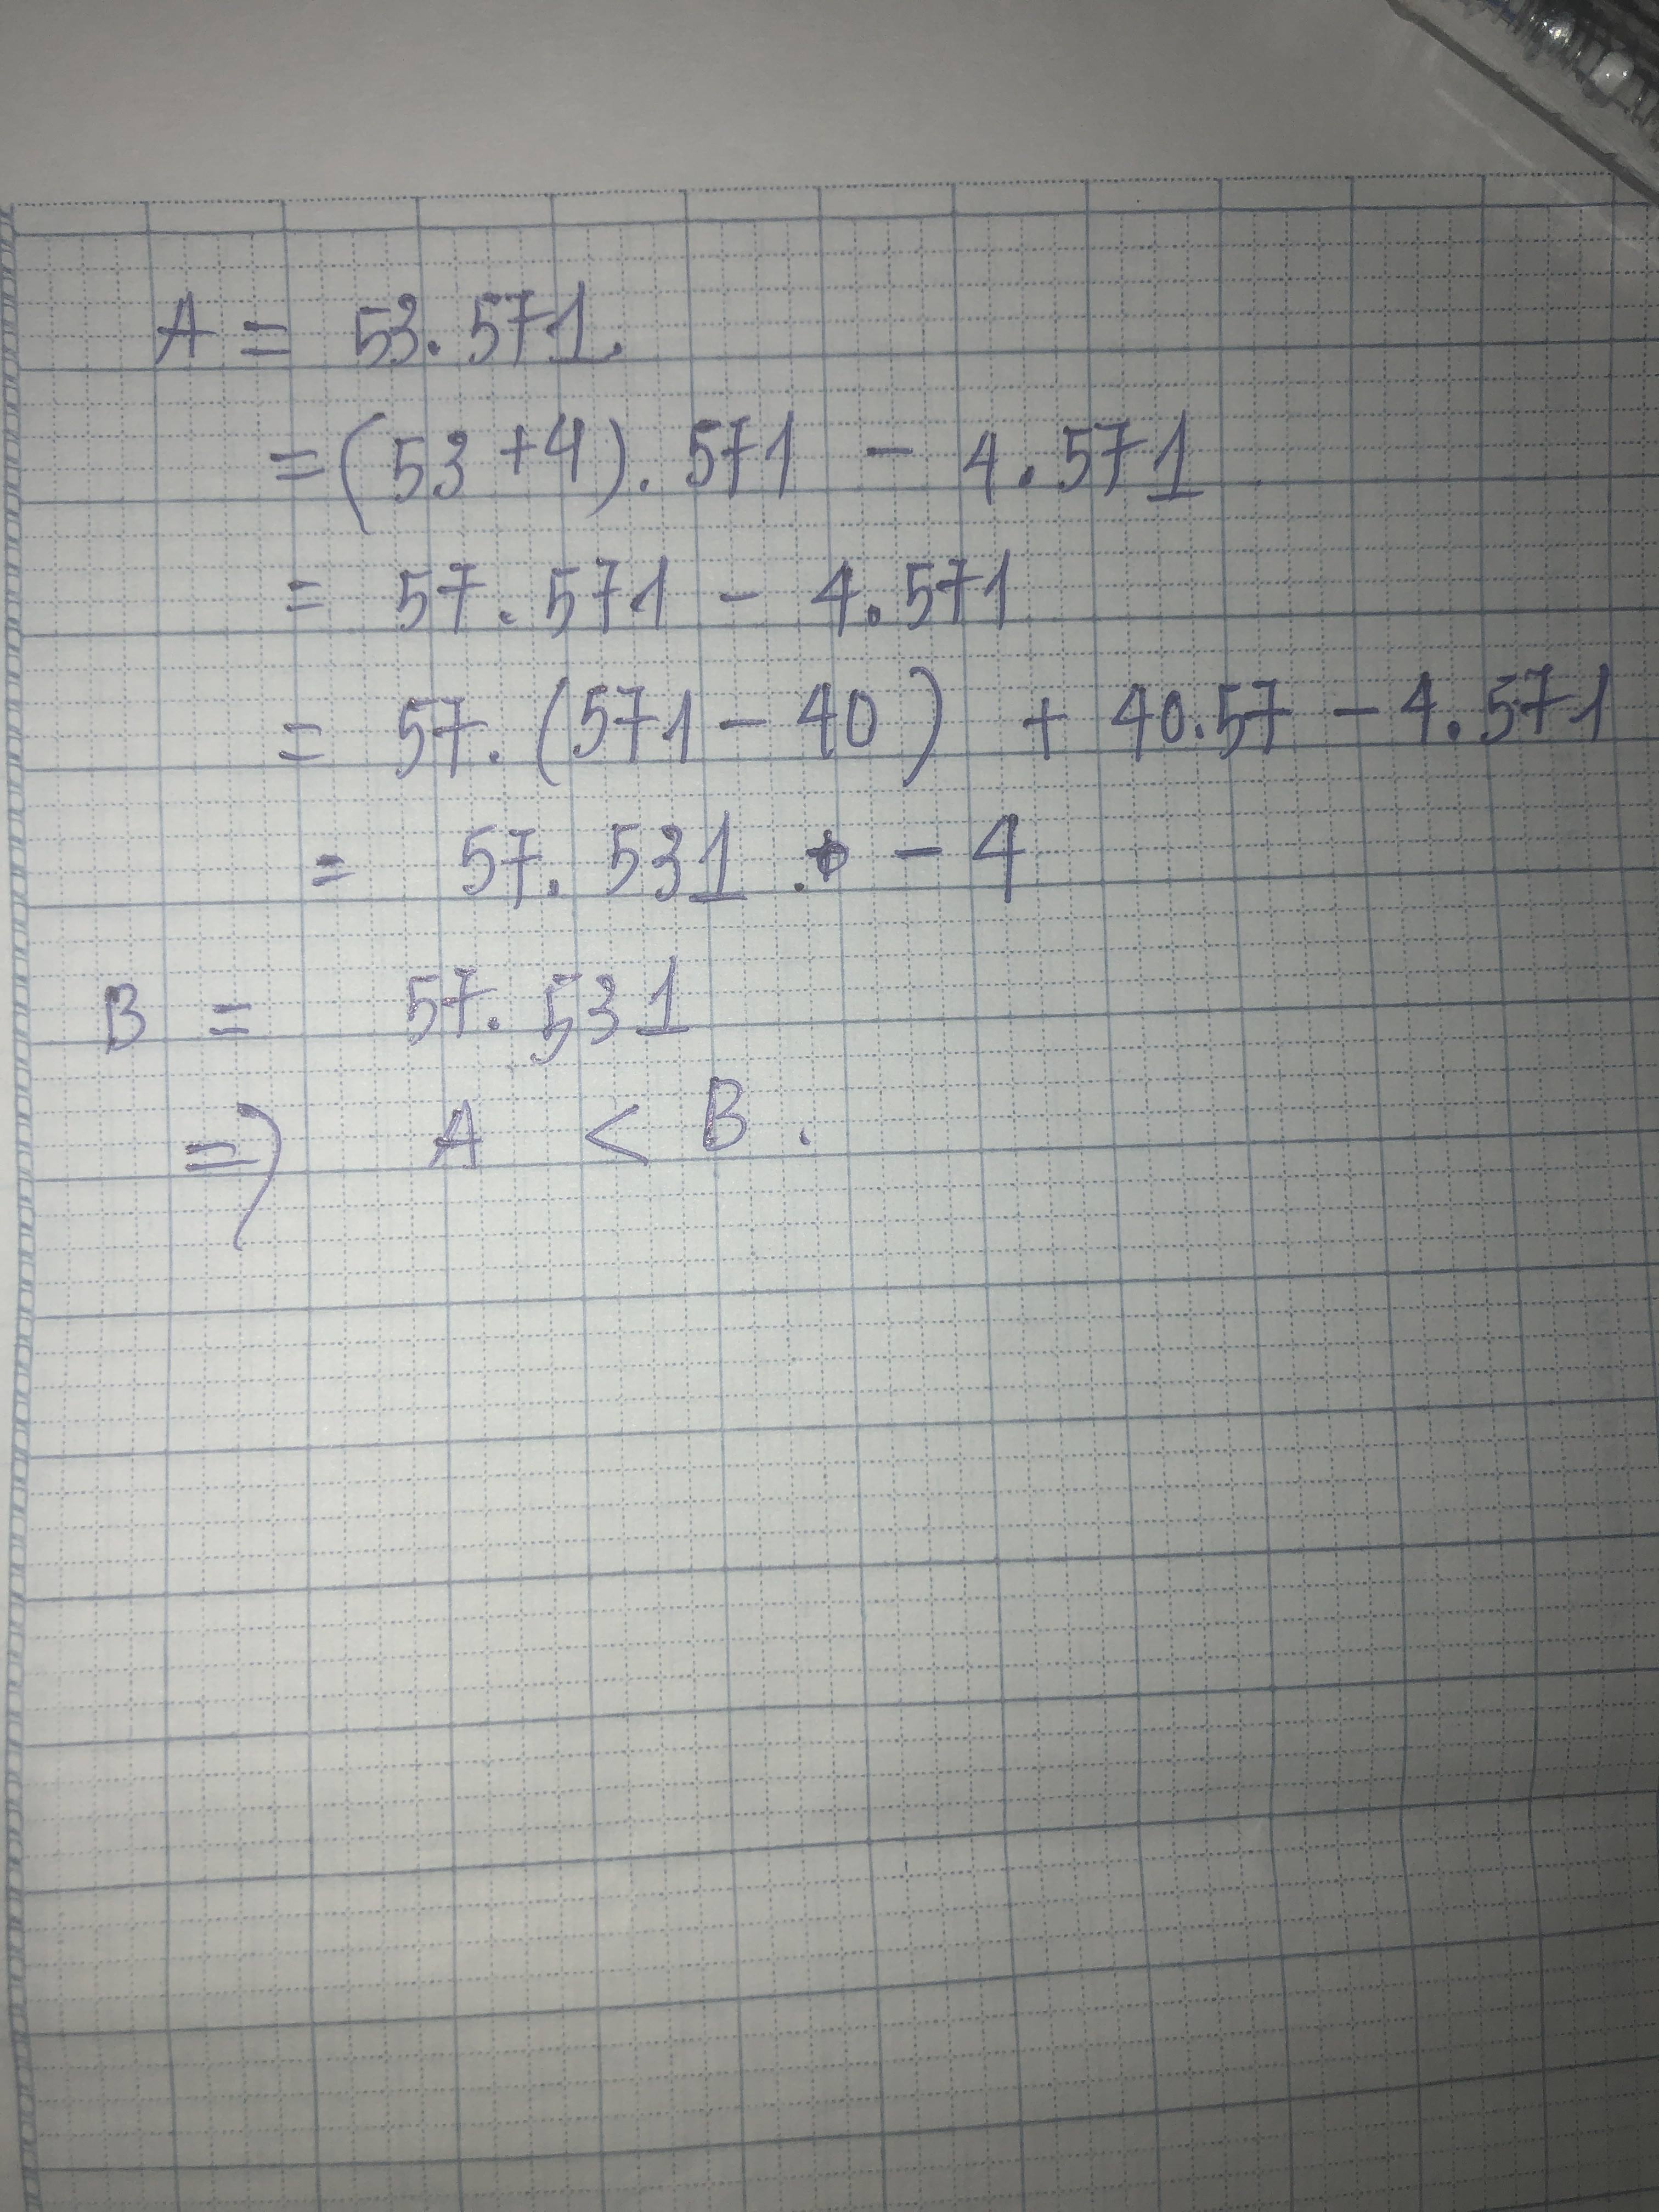 A = 53.571.
= (53 + 4). 571 - 4.571
= 57. 571 - 4.571
= 57. (571 - 40) + 40.57 - 4.571
= 57. 531 - 4
B = 57. 531
=> A < B.